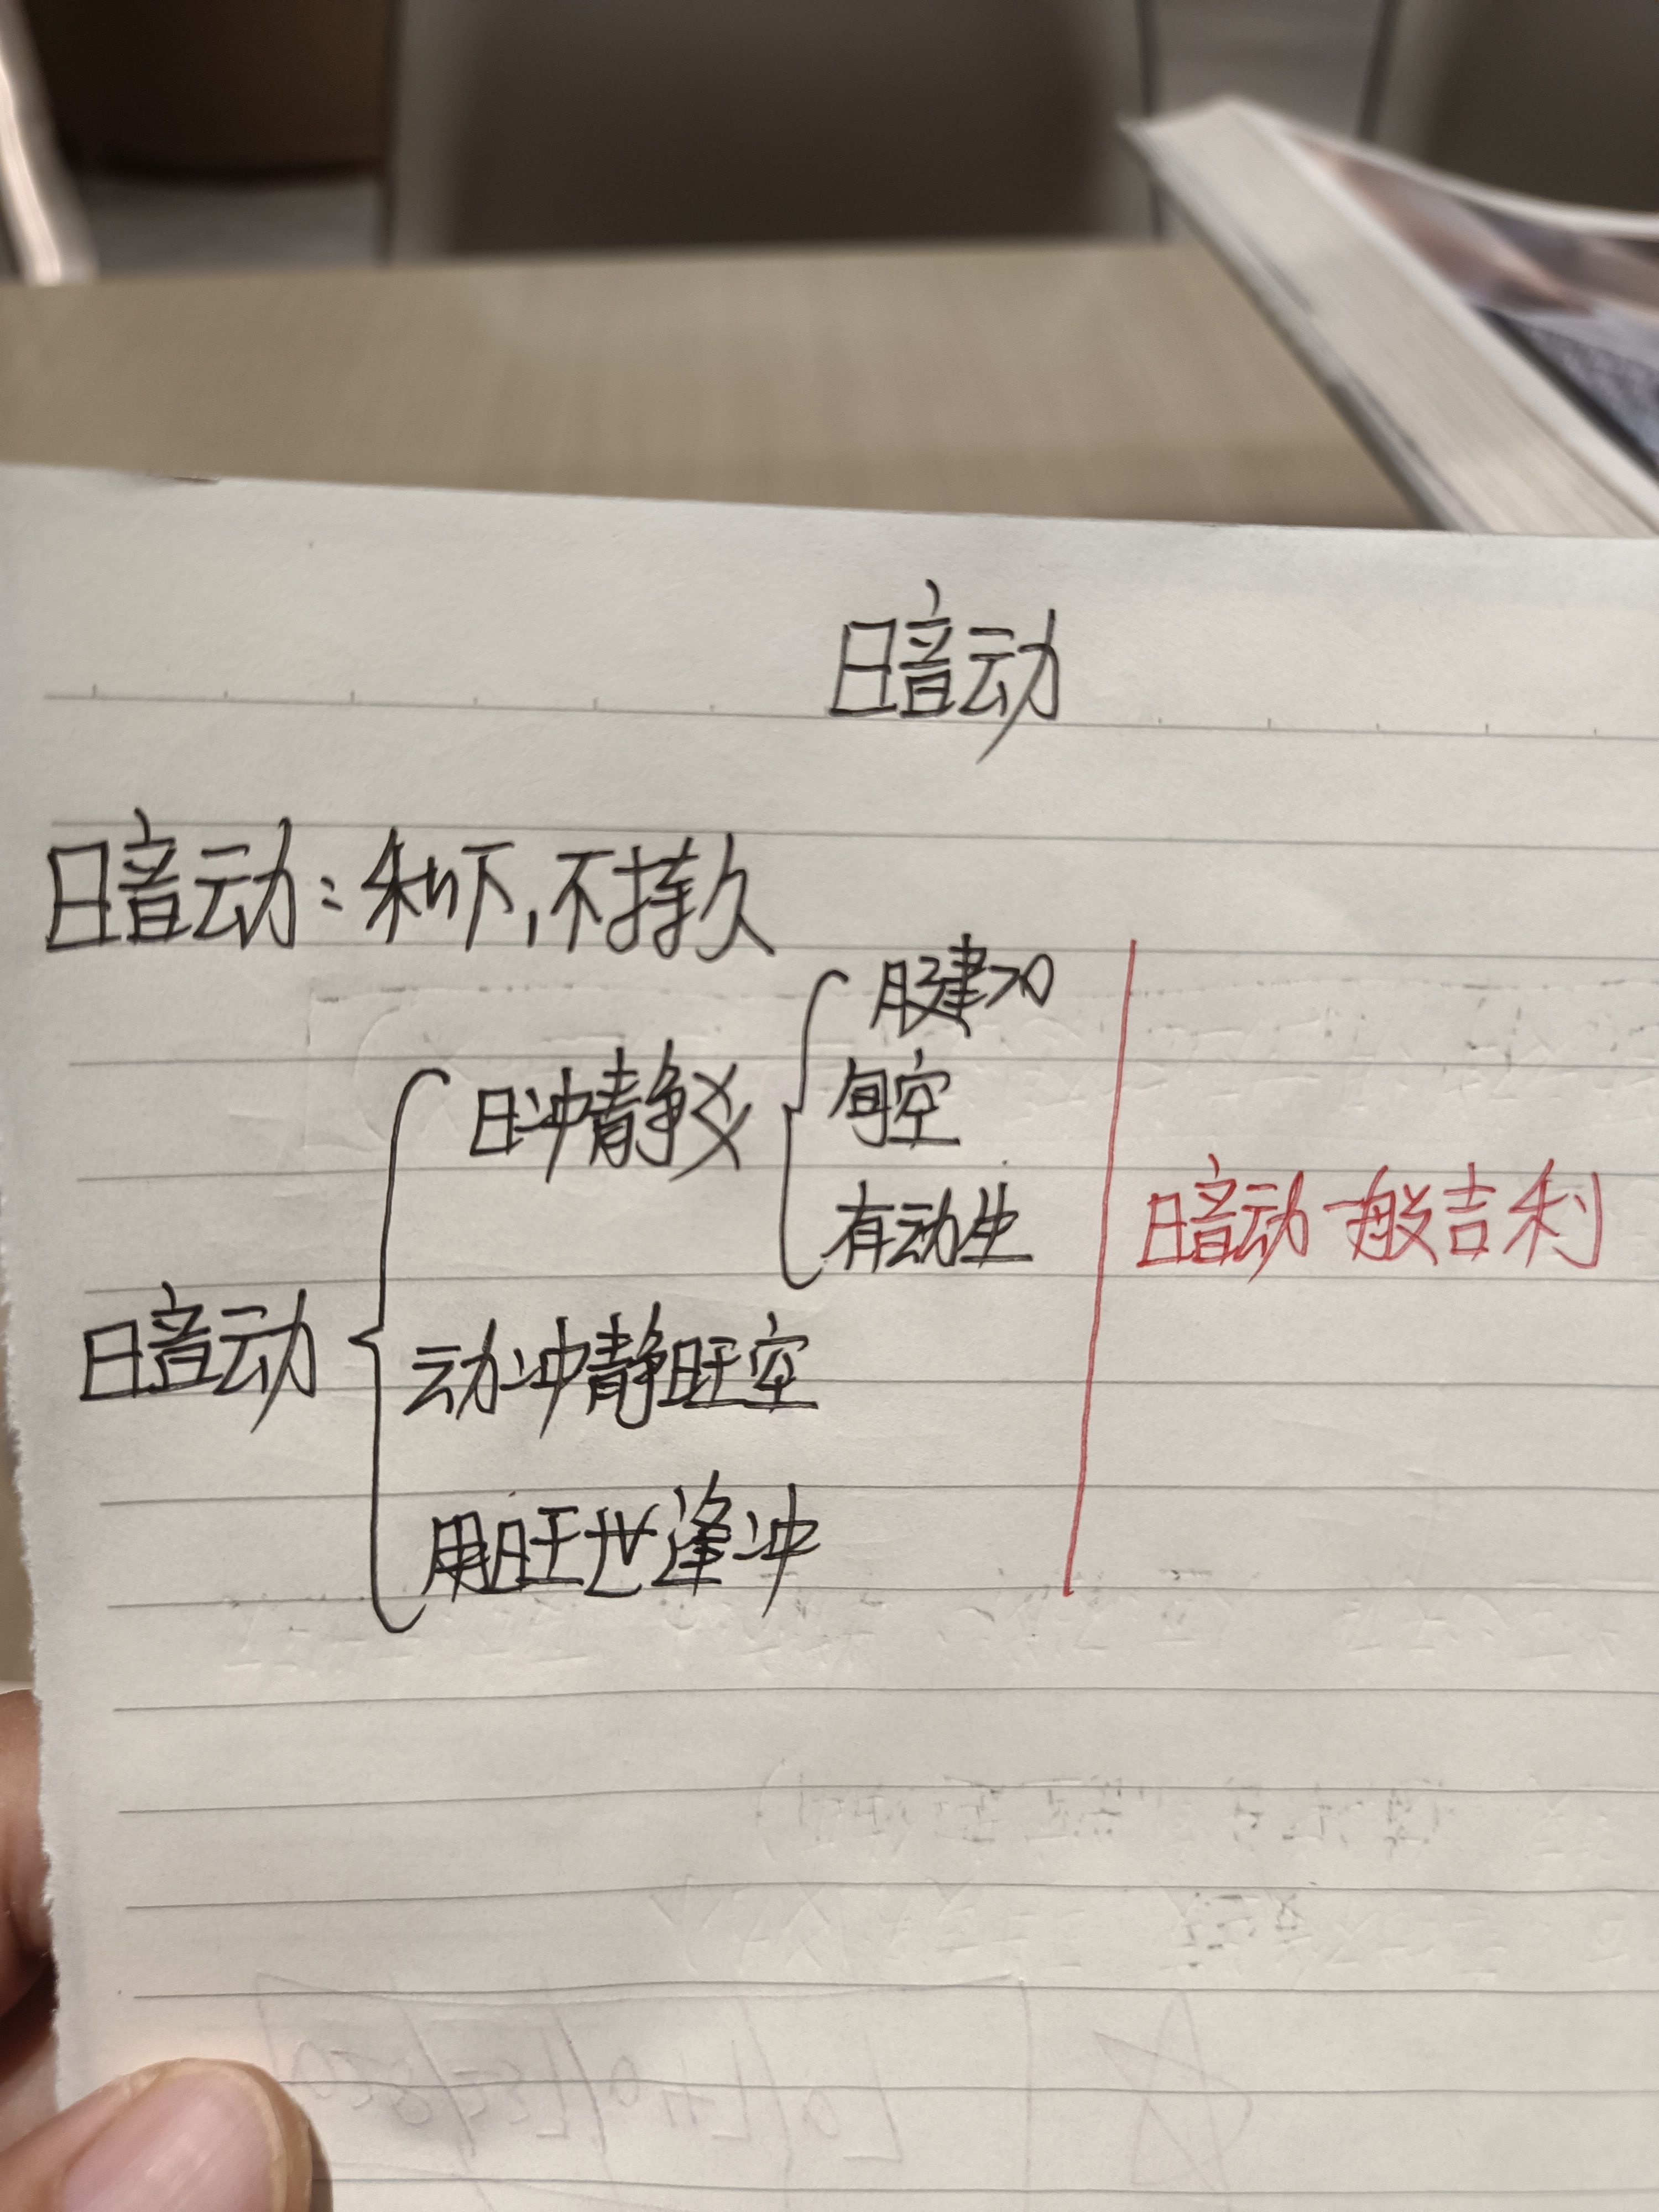 暗动
暗动：私下，不持久
暗动
日冲静爻
月建>0
旬空
有动生
动冲静旺空
用旺世逢冲
暗动一般吉利